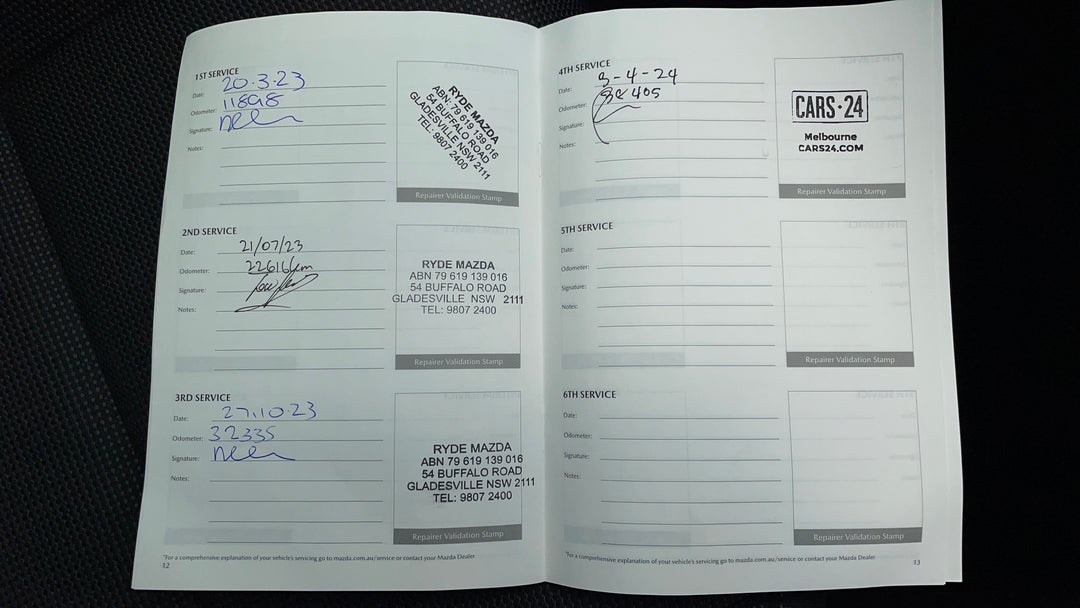 1ST SERVICE
Date: 20.3.23
Odometer: 11898
Signature:
Notes:
RYDE MAZDA
ABN: 79 619 139 016
54 BUFFALO ROAD
GLADESVILLE NSW 2111
TEL: 9807 2400
Repairer Validation Stamp
2ND SERVICE
Date: 21/07/23
Odometer: 22616km
Signature:
Notes:
RYDE MAZDA
ABN 79 619 139 016
54 BUFFALO ROAD
GLADESVILLE NSW 2111
TEL: 9807 2400
Repairer Validation Stamp
3RD SERVICE
Date: 27.10.23
Odometer: 32335
Signature:
Notes:
RYDE MAZDA
ABN 79 619 139 016
54 BUFFALO ROAD
GLADESVILLE NSW 2111
TEL: 9807 2400
Repairer Validation Stamp
*For a comprehensive explanation of your vehicle's servicing go to mazda.com.au/service or contact your Mazda Dealer
12
4TH SERVICE
Date: 3-4-24
Odometer:
Signature:
Notes:
CARS·24
Melbourne
CARS24.COM
Repairer Validation Stamp
5TH SERVICE
Date:
Odometer:
Signature:
Notes:
Repairer Validation Stamp
6TH SERVICE
Date:
Odometer:
Signature:
Notes:
Repairer Validation Stamp
*For a comprehensive explanation of your vehicle's servicing go to mazda.com.au/service or contact your Mazda Dealer
13